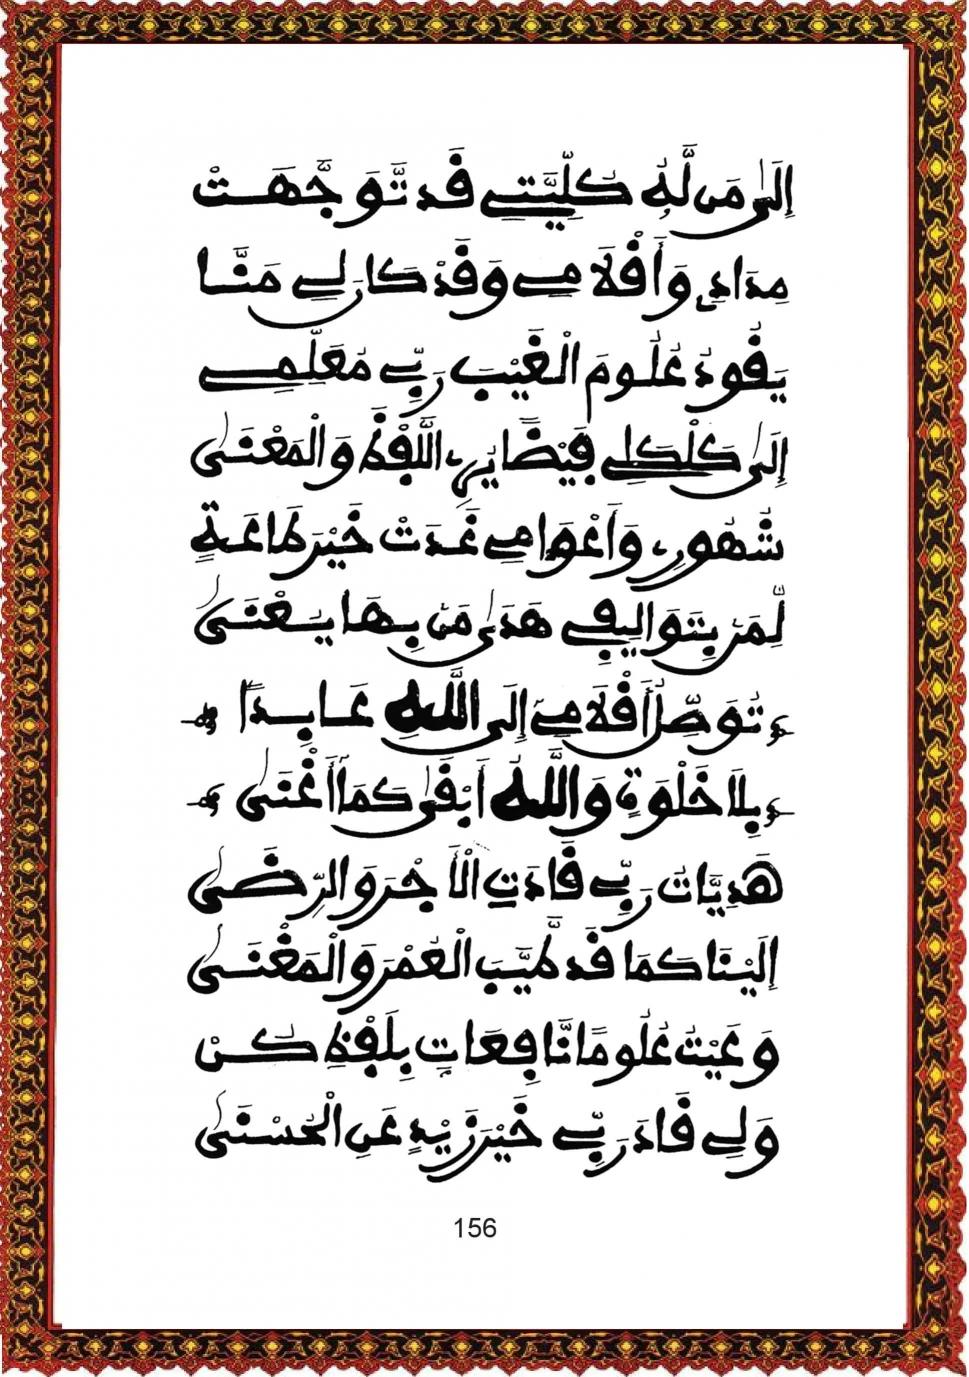 إِلَىٰ مَن لَّهُ كُلِّيَّتِي قَد تَّوَجَّهَتْ
مِدَادِي وَأَقْلَامِي وَقَدْ كَانَ لِي مَنَّا
يَقُودُ عُلُومَ الْغَيْبِ رَبِّي مُعَلِّمِي
إِلَىٰ كَلْكَلِي فَيْضًا يُرِي اللَّفْظَ وَالْمَعْنَىٰ
شُهُورِي وَأَعْوَامِي غَدَتْ خَيْرَ طَاعَةٍ
لِّمَنْ بِتَوَالِيفِي هَدَىٰ مَنْ بِهَا يَعْنَىٰ
تُوَصِّلُ أَقْلَامِي إِلَى اللَّهِ عَابِدًا
بِلَا خَلْوَةٍ وَاللَّهُ أَبْقَىٰ كَمَا أَغْنَىٰ
هَدِيَّاتُ رَبِّي قَادَتِ الْأَجْرَ وَالرِّضَىٰ
إِلَيْنَا كَمَا قَدْ طَيَّبَ الْعُمْرَ وَالْمَغْنَىٰ
وَعَيْتُ عُلُومًا نَّافِعَاتٍ بِلَفْظِ كُنْ
وَلِي قَادَ رَبِّي خَيْرَ زَيْدٍ عَنِ الْحُسْنَىٰ
156